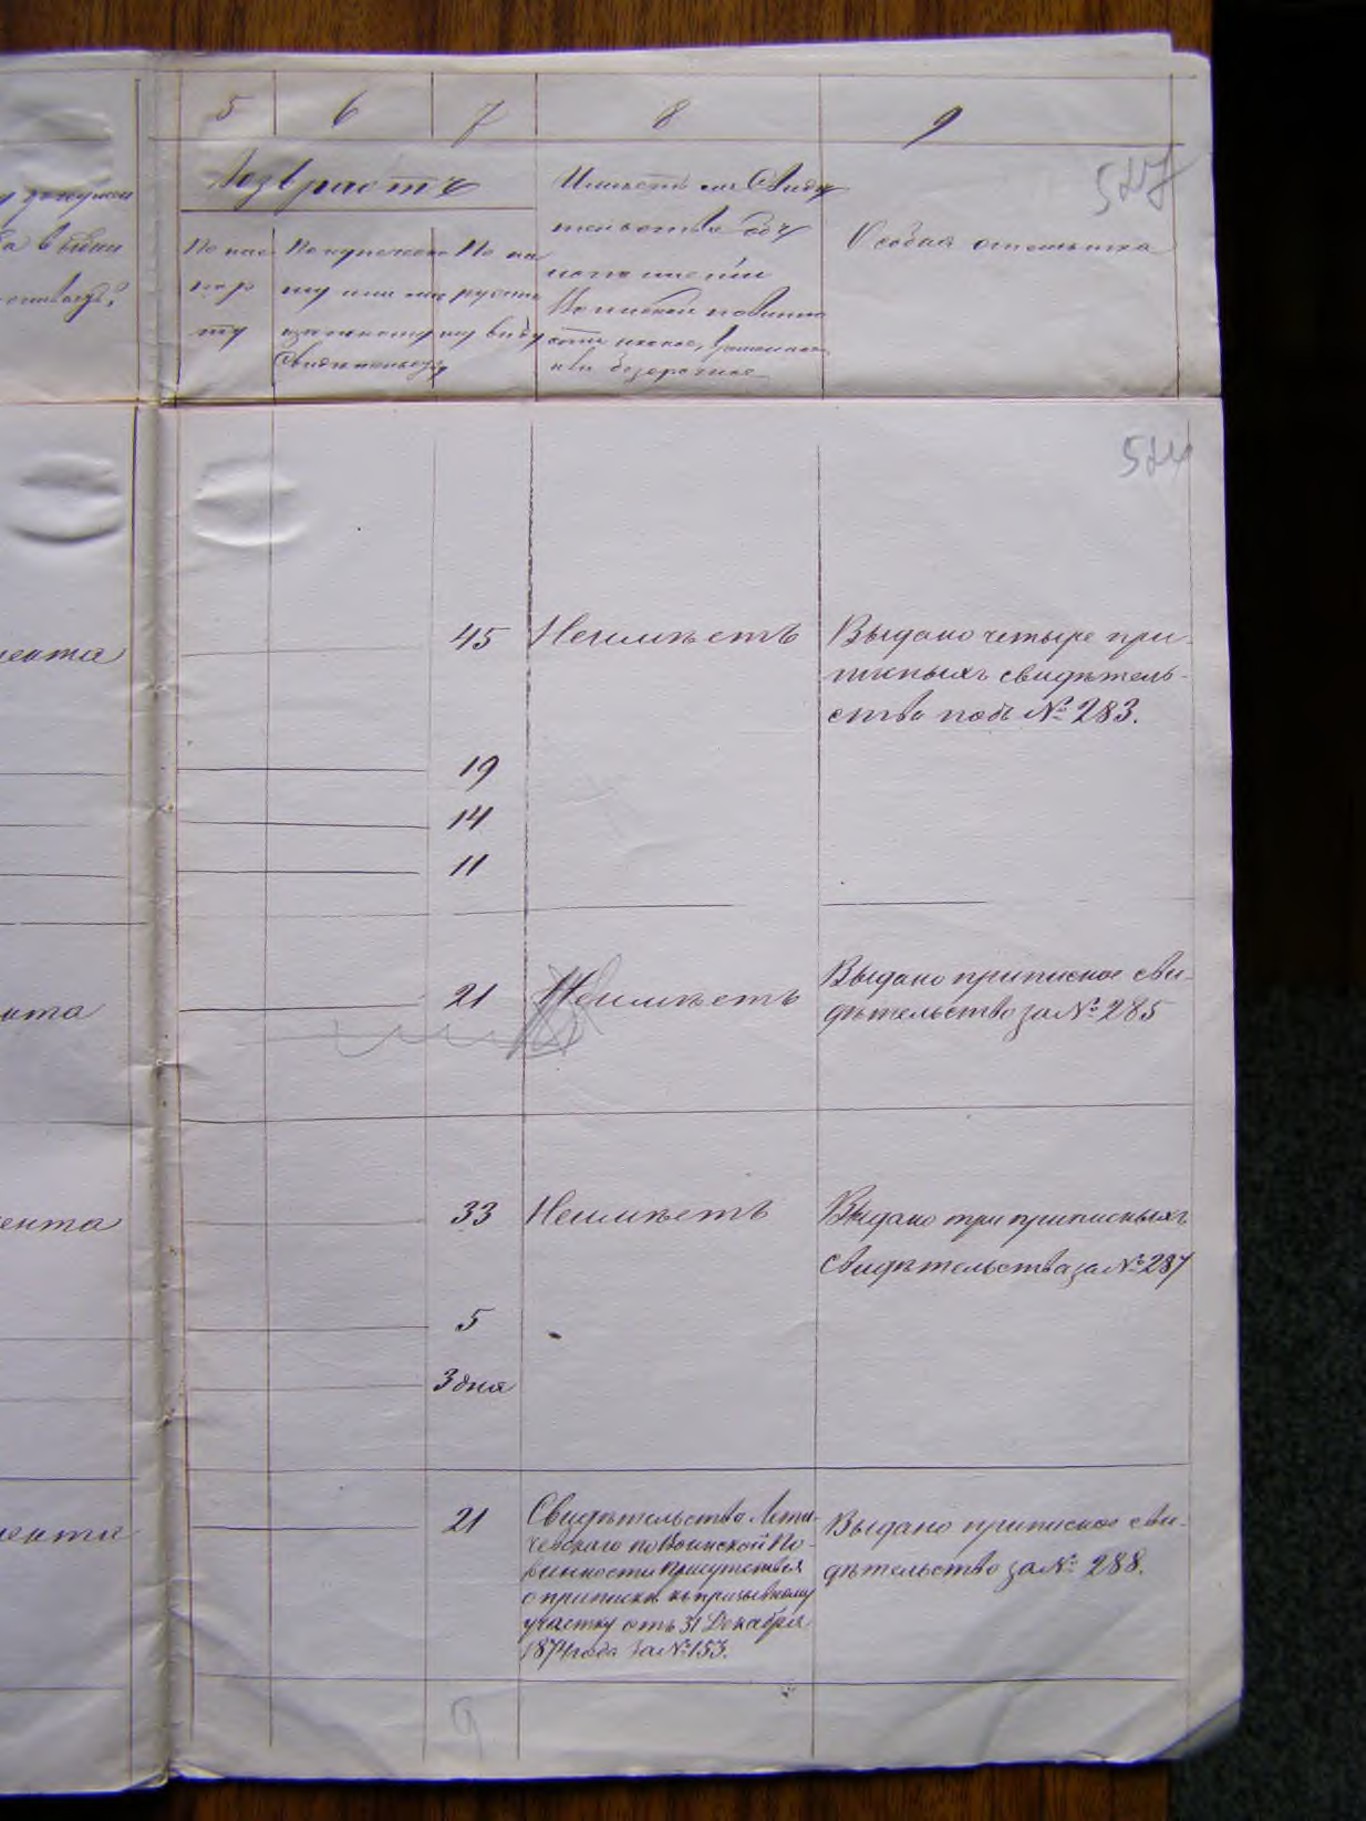 5 6 7 8 9
527
Возрастъ
Имѣетъ ли Свидѣ
тельство объ
Особая отмѣтка
По пас
порту
По наружному виду
524
45 Неимѣетъ Выдано четыре при-
писныхъ свидѣтель-
ства подъ № 283.
19
14
11
21 Неимѣетъ Выдано приписное сви-
дѣтельство за № 285
33 Неимѣетъ Выдано три приписныхъ
свидѣтельства за № 287
5
3 дня
21 Свидѣтельство Лети-
чевскаго по Воинской По-
винности Присутствія
о припискѣ къ призывному
участку отъ 31 Декабря
1874 года за № 153.
Выдано приписное сви-
дѣтельство за № 288.